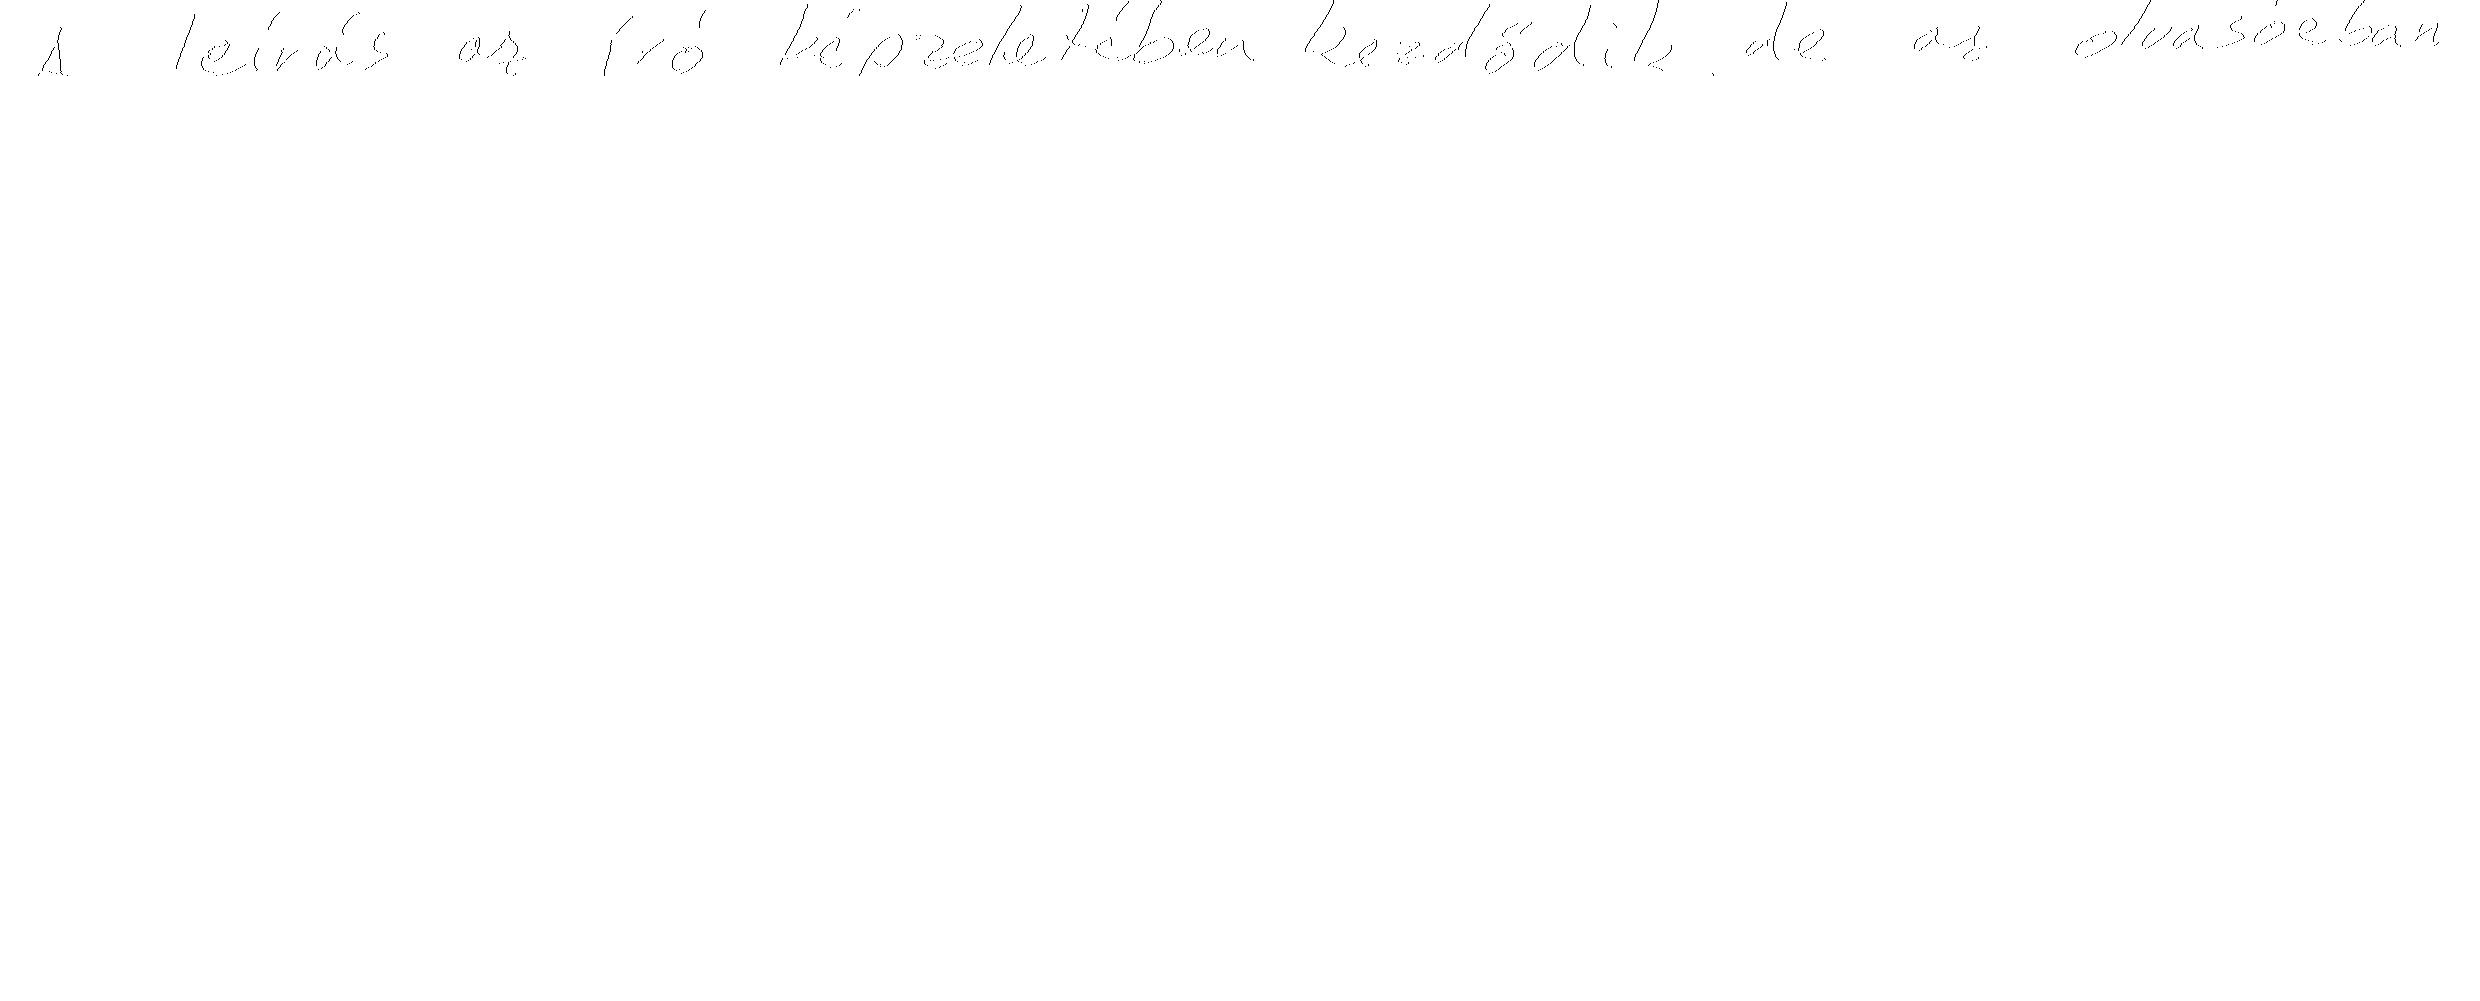 A leírás az író képzeletében kezdődik, de az olvasóéban